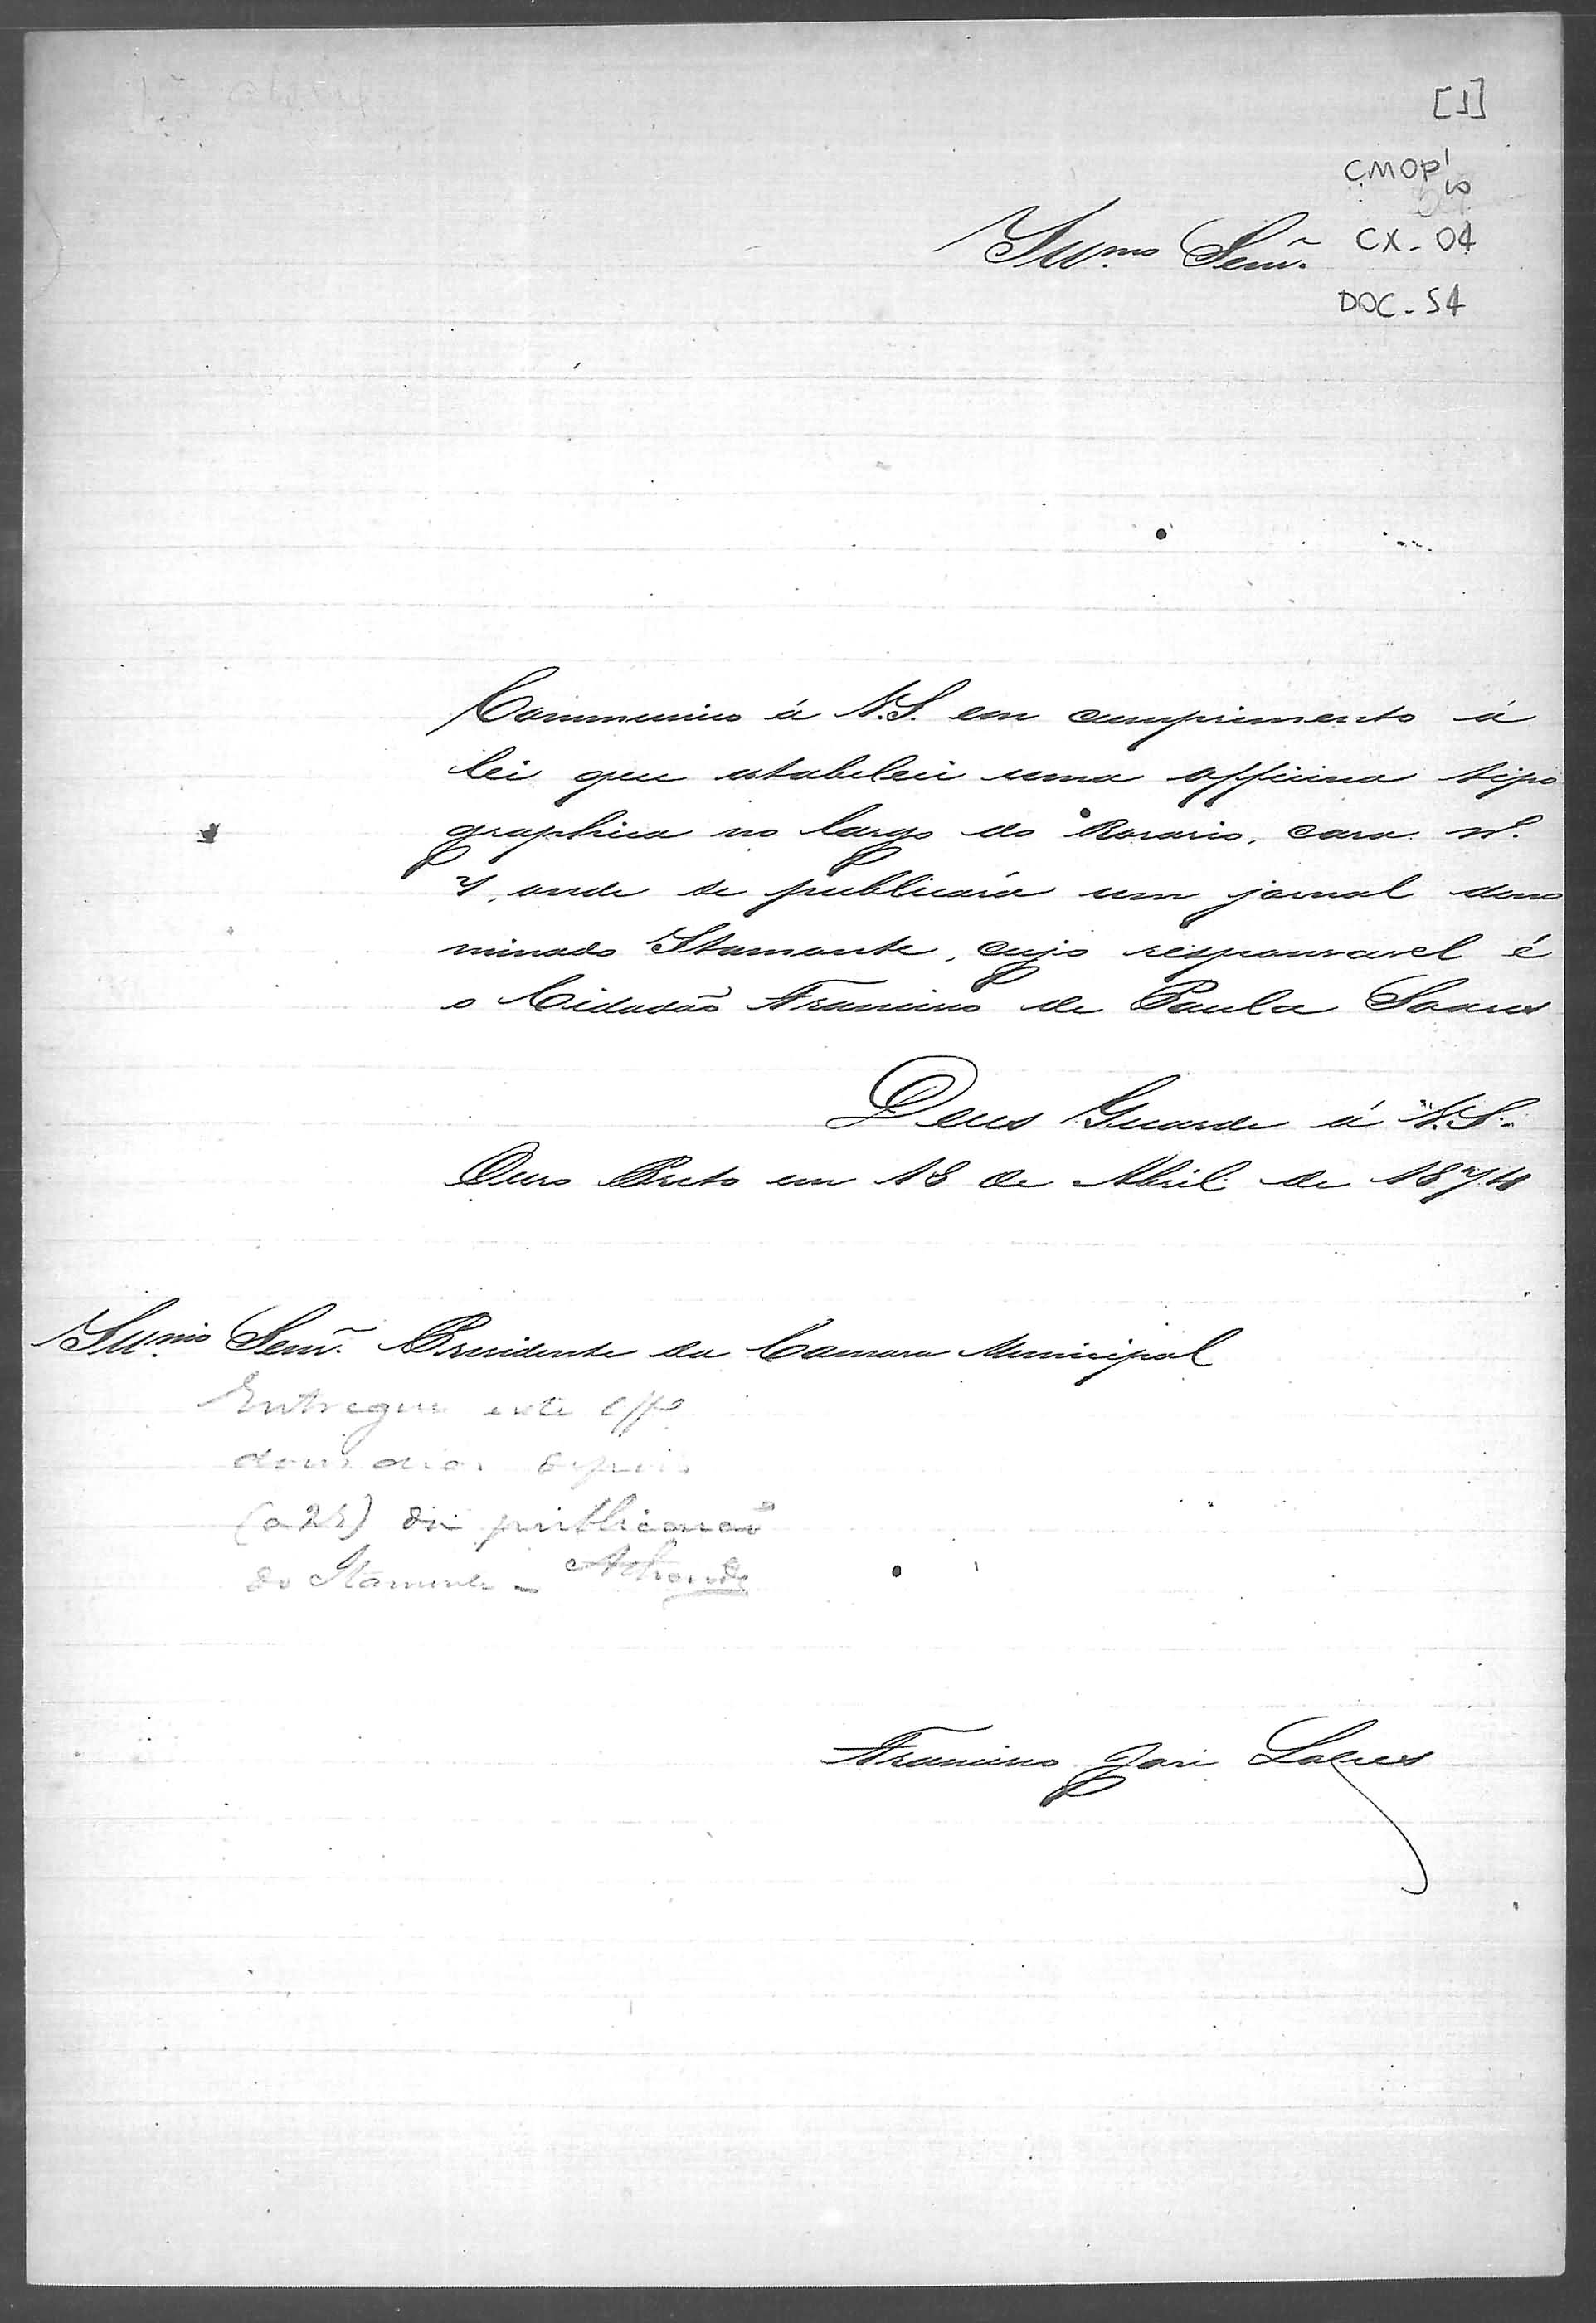 [1]
CMOP
CX - 04
Illmo Senr.
DOC - 54
Communico á V.S. em cumprimento á
lei que estabeleci uma officina tipo
graphica no largo do Rosario, casa nº.
7, onde se publicará um jornal deno
minado Itamonte, cujo responsavel é
o Cidadão Francisco de Paula
Deus Guarde á V.S.
Ouro Preto em 18 de Abril de 1874
Illmo Senr. Presidente da Camara Municipal
Entregue este Offº
dous dias depois
de publicação
do Itamonte -
Francisco José